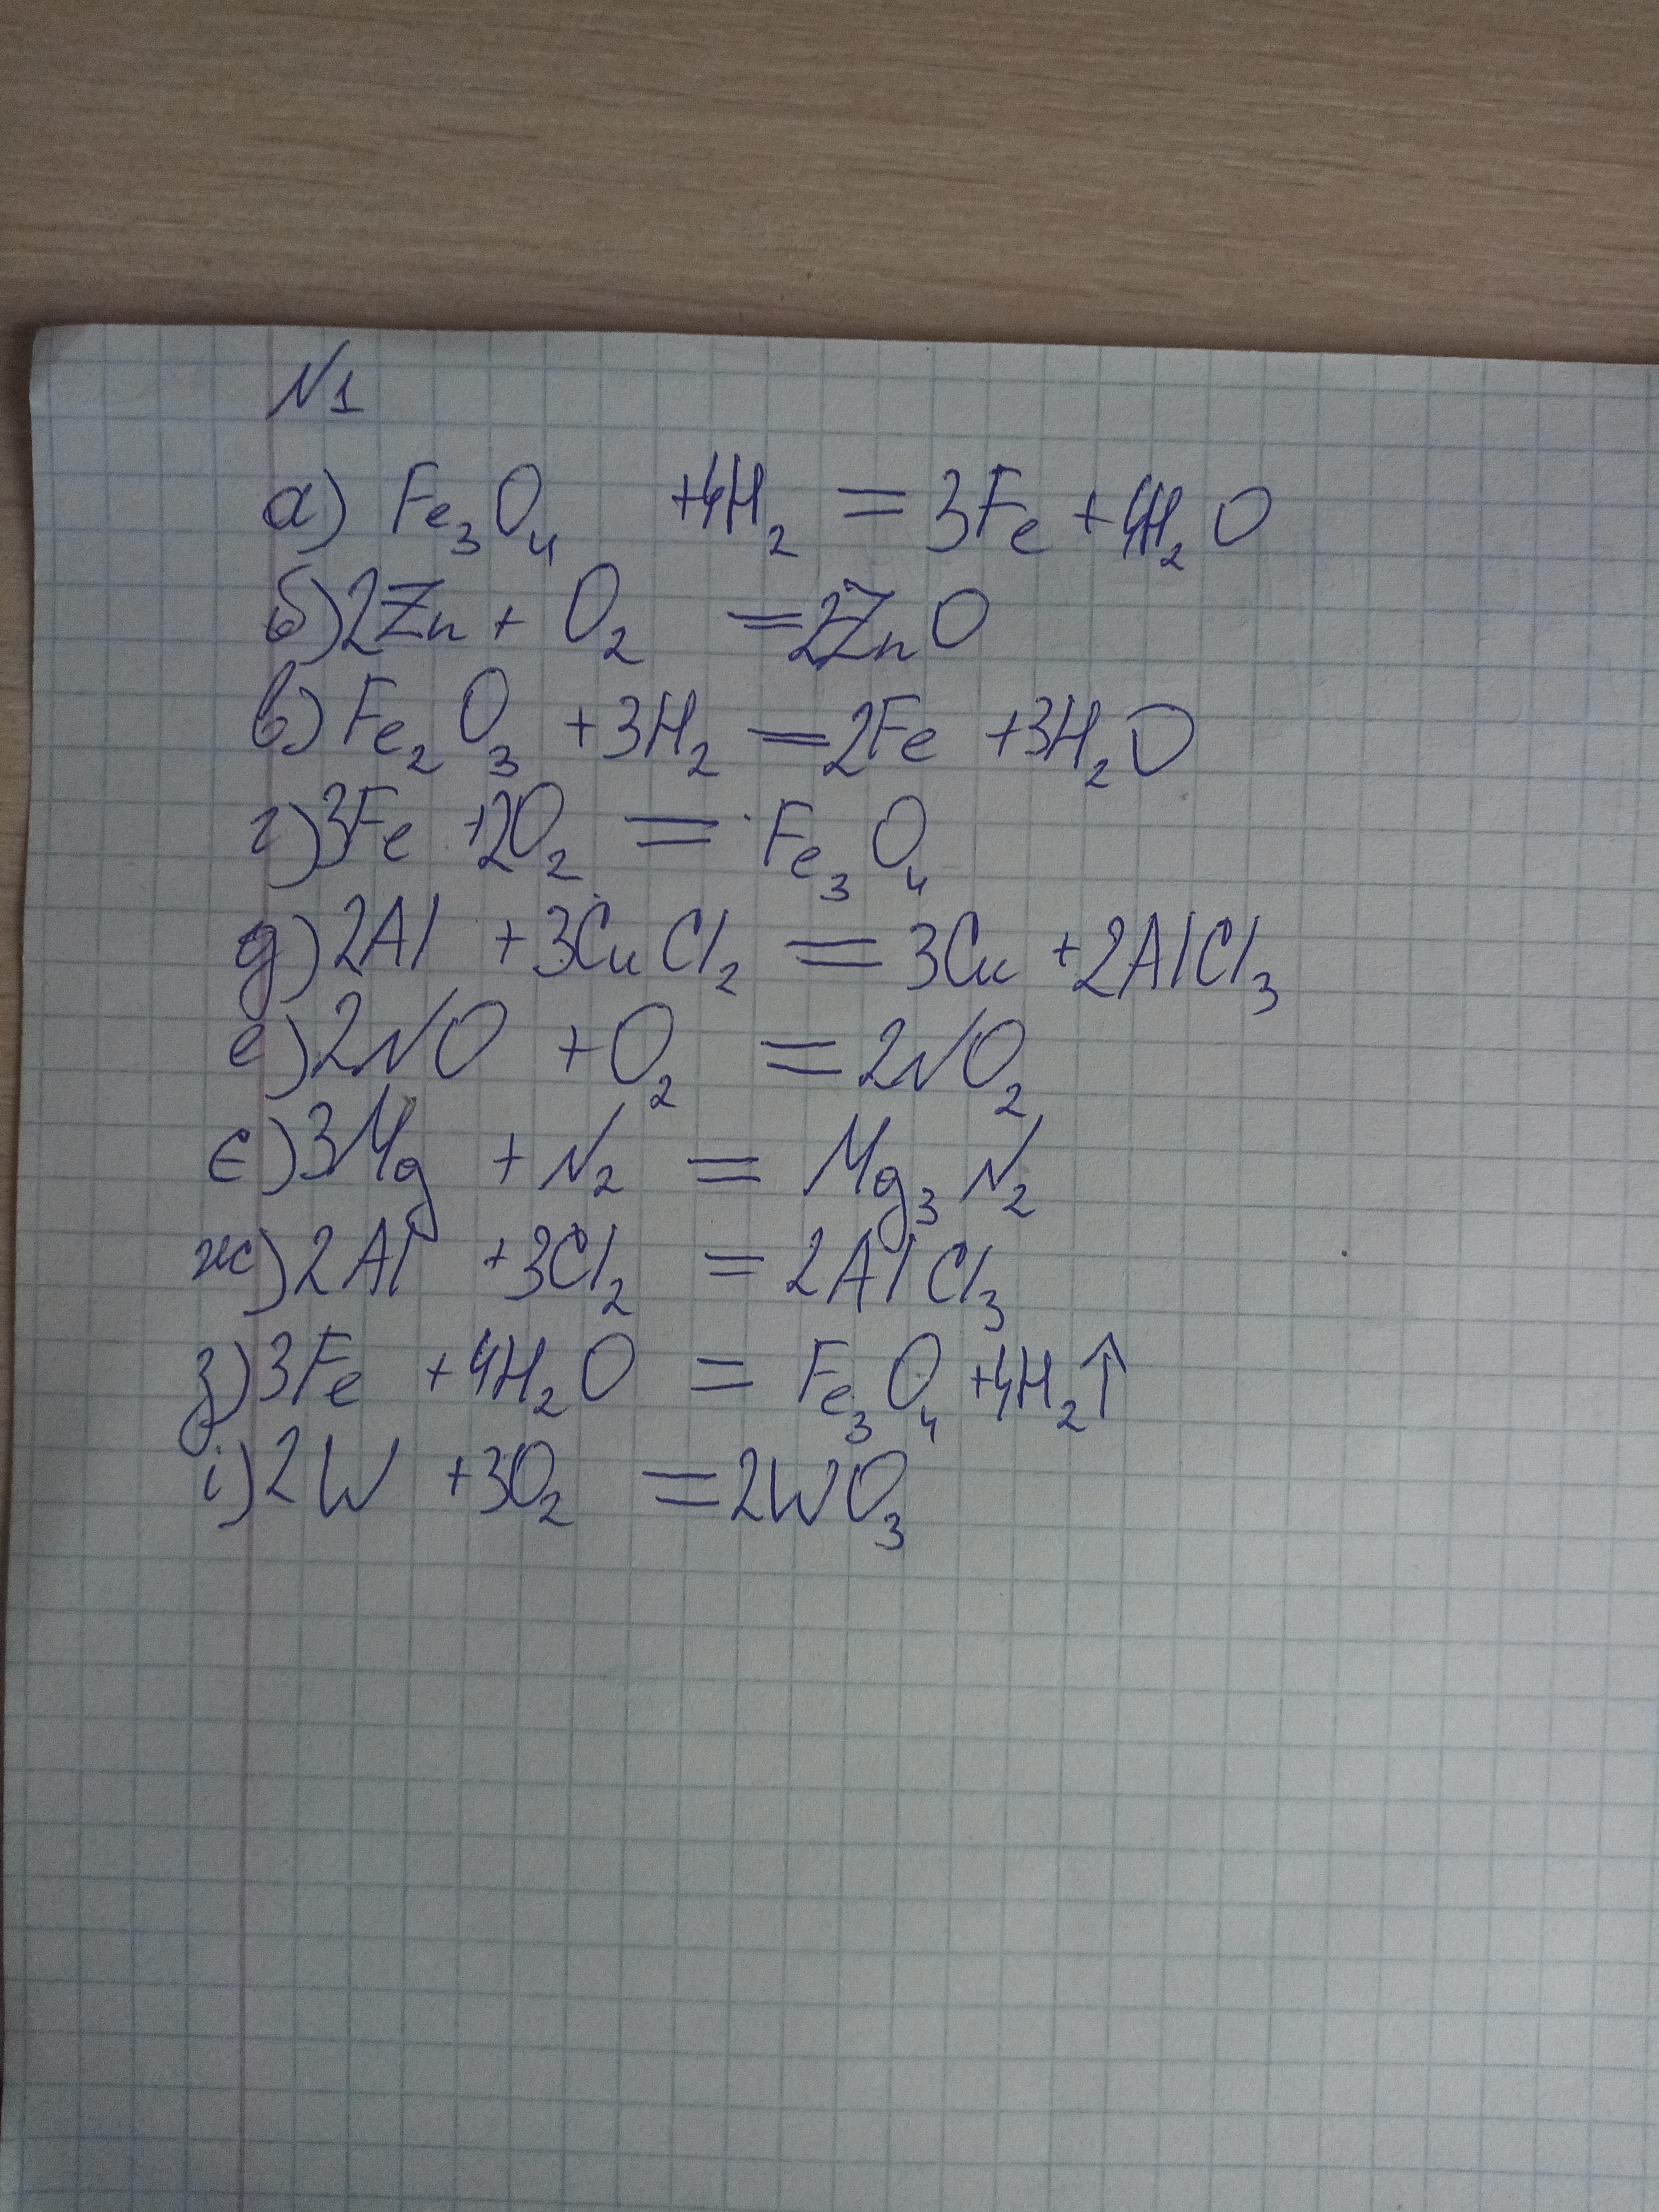 N1
а) Fe₃O₄ +4H₂ = 3Fe +4H₂O
б) 2Zn + O₂ = 2ZnO
в) Fe₂O₃ +3H₂ = 2Fe +3H₂O
г) 3Fe +2O₂ = Fe₃O₄
д) 2Al +3CuCl₂ = 3Cu +2AlCl₃
е) 2NO +O₂ = 2NO₂
є) 3Mg + N₂ = Mg₃N₂
ж) 2Al +3Cl₂ = 2AlCl₃
з) 3Fe +4H₂O = Fe₃O₄ +4H₂↑
і) 2W +3O₂ = 2WO₃